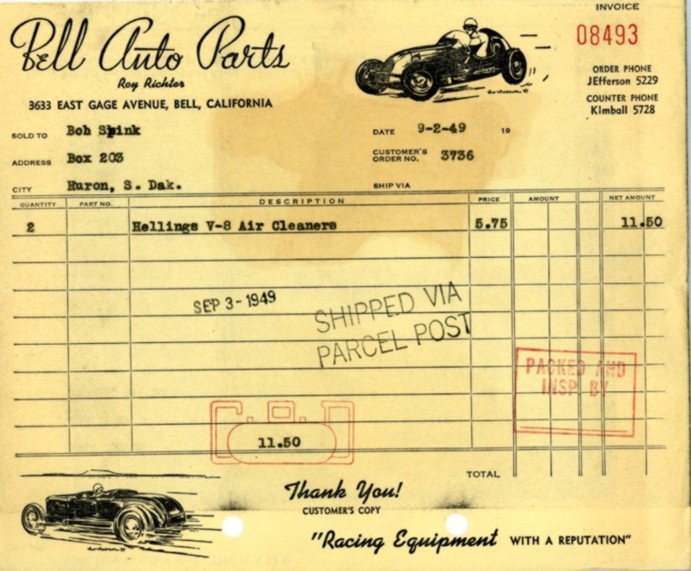 INVOICE
Bell Auto Parts
08493
Roy Richter
ORDER PHONE
JEfferson 5229
3633 EAST GAGE AVENUE, BELL, CALIFORNIA
COUNTER PHONE
KImball 5728
SOLD TO Bob Spink
DATE 9-2-49 19
ADDRESS Box 203
CUSTOMER'S ORDER NO. 3736
CITY Huron, S. Dak.
SHIP VIA
QUANTITY PART NO. DESCRIPTION PRICE AMOUNT NET AMOUNT
2 Hellings V-8 Air Cleaners 5.75 11.50
SEP 3-1949
SHIPPED VIA
PARCEL POST
PACKED AND
INSP BY
C.O.D
11.50
TOTAL
Thank You!
CUSTOMER'S COPY
"Racing Equipment WITH A REPUTATION"